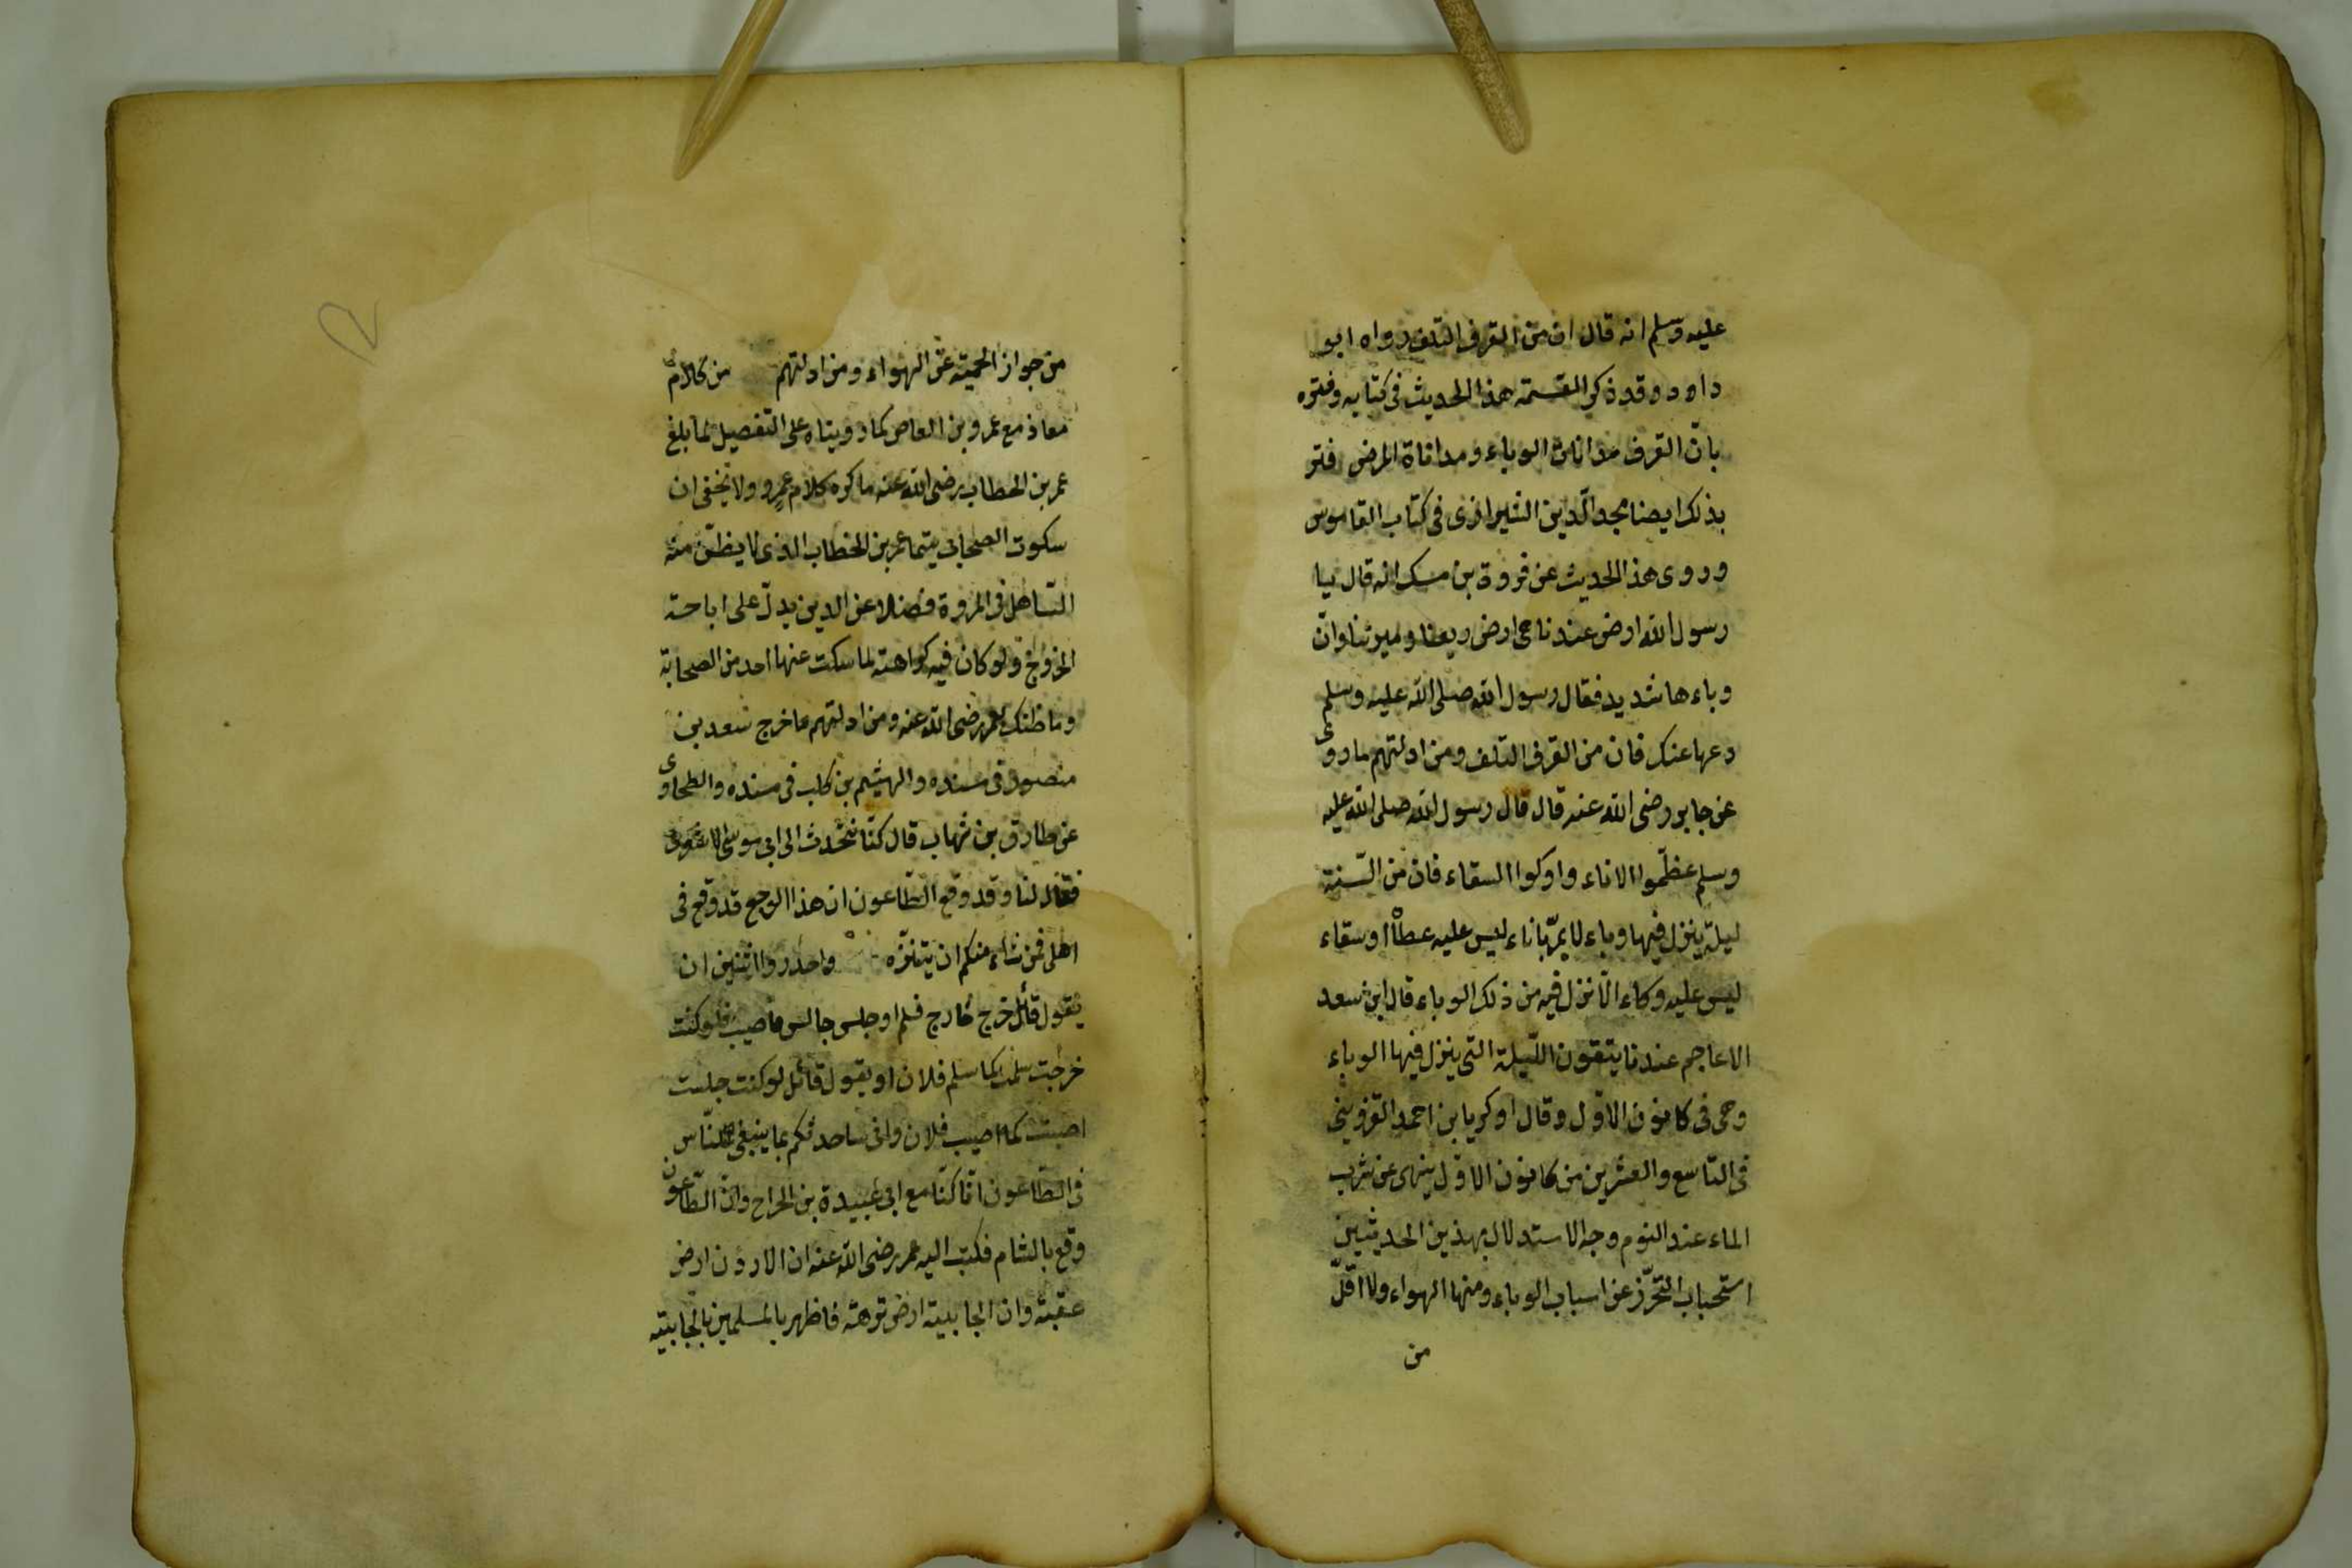 عليه وسلم انه قال ان من القرف التلف رواه ابو
داود وقد ذكر القسمة هذا الحديث فى كتابه وفتره
بانّ القرف مداناة الوباء ومداناة المرض فتر
بذلك ايضا مجد الدّين الشيرازى فى كتاب القاموس
وروى هذا الحديث عن فروة بن مسك انه قال يا
رسول الله ارض عندنا هى ارض ريعنا وميرتنا وانّ
وباءها شديد فقال رسول الله صلى الله عليه وسلم
دعها عنك فان من القرف التلف ومن ادلتهم ما روى
عن جابر رضى الله عنه قال قال رسول الله صلى الله عليه
وسلم عظّموا الاناء واوكوا السقاء فان من السّنة
ليلة ينزل فيها وباء لا يمرّ باناء ليس عليه عطاْ او سقاء
ليس عليه وكاء الّا نزل فيه من ذلك الوباء قال ابن سعد
الاعاجم عندنا يتقون اللّيلة التى ينزل فيها الوباء
وهى فى كانون الاوّل وقال اوكريا بن احمد القزوينى
فى التاسع والعشرين من كانون الاوّل ينهى عن شرب
الماء عند النوم وجه الاستدلال بهذين الحديثين
استحباب التحرّز عن اسباب الوباء ومنها الهواء ولا اقلّ
من
من جواز الحمية عن الهواء ومن ادلتهم من كلام
معاذ مع عمرو بن العاص كما رويناه على التفصيل لما بلغ
عمر بن الخطاب رضى الله عنه ما كره كلام عمرو ولا يخفى ان
سكوت الصحابى سيما عمر بن الخطاب الذى لا يظنّ منه
التساهل فى المروة فضلا عن الدين يدلّ على اباحة
الخروج ولو كان فيه كراهته لما سكت عنها احد من الصحابة
وما ظنك بعمر رضى الله عنه ومن ادلتهم ما خرج سعد بن
منصور فى مسنده والهيثم بن كلب فى مسنده والطحاوى
عن طارق بن شهاب قال كنّا نتحدث الى ابى موسى الاشعرى
فقال لنا وقد وقع الطّاعون ان هذا الوجع قد وقع فى
اهلى فمن شاء منكم ان يتنزّه واحذروا اثنين ان
يقول قائل خرج خارج فسلم او جلس جالس فاصيب فلو كنت
خرجت سلمت كما سلم فلان او يقول قائل لو كنت جلست
اصبت كما اصيب فلان وانى ساحدثكم بما ينبغى للنّاس
فى الطّاعون انّا كنّا مع ابى عبيدة بن الجراح وانّ الطّاعون
وقع بالشام فكتب اليه عمر رضى الله عنه ان الاردن ارض
عقبته وان الجابية ارض نزهة فاظهر بالمسلمين بالجابيته